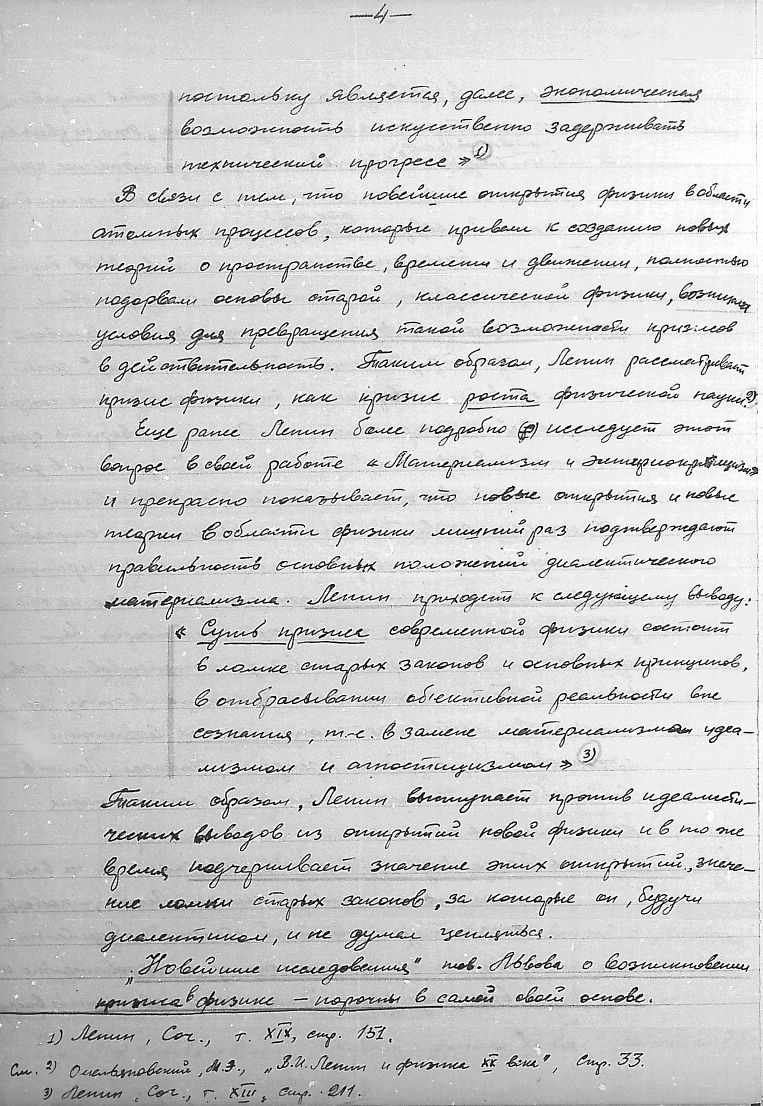 —4—
постольку является, далее, экономическая
возможность искуственно задерживать
технический прогресс» 1)
В связи с тем, что новейшие открытия физики в области
атомных процессов, которые привели к созданию новых
теорий о пространстве, времени и движении, полностью
подорвали основы старой, классической физики, возникли
условия для превращения такой возможности кризисов
в действительность. Таким образом, Ленин рассматривает
кризис физики, как кризис роста физической науки. 2)
Еще ранее Ленин более подробно исследует этот
вопрос в своей работе «Материализм и эмпириокритицизм»
и прекрасно показывает, что новые открытия и новые
теории в области физики лишний раз подтверждают
правильность основных положений диалектического
материализма. Ленин приходит к следующему выводу:
« Суть кризиса современной физики состоит
в ломке старых законов и основных принципов,
в отбрасывании обективной реальности вне
сознания, т.-е. в замене материализма идеа-
лизмом и агностицизмом» 3)
Таким образом, Ленин выступает против идеалисти-
ческих выводов из открытий новой физики и в то же
время подчеркивает значение этих открытий, значе-
ние ломки старых законов, за которые он, будучи
диалектиком, и не думал цепляться.
„Новейшие исследования" тов. Львова о возникновении
кризиса в физике – порочны в самой своей основе.
1) Ленин, Соч., т. XIX, стр. 151.
См. 2) Омельяновский, М.Э., „В.И. Ленин и физика XX века", стр. 33.
3) Ленин, Соч., т. XIII, стр. 211.